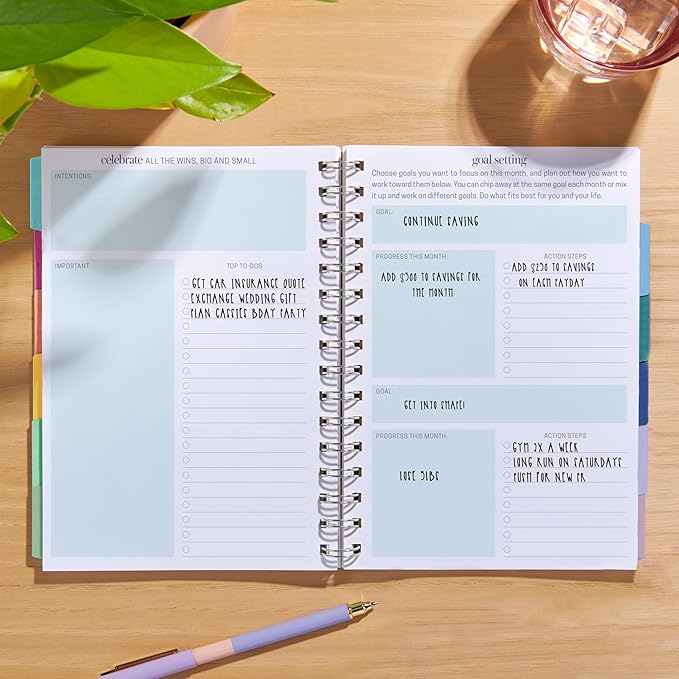 celebrate ALL THE WINS, BIG AND SMALL
INTENTIONS:
IMPORTANT:
TOP TO-DOS
GET CAR INSURANCE QUOTE
EXCHANGE WEDDING GIFT
PLAN CASSIES BDAY PARTY
goal setting
Choose goals you want to focus on this month, and plan out how you want to
work toward them below. You can chip away at the same goal each month or mix
it up and work on different goals. Do what fits best for you and your life.
GOAL:
CONTINUE SAVING
PROGRESS THIS MONTH:
ADD $500 TO SAVINGS FOR
THE MONTH
ACTION STEPS
ADD $250 TO SAVINGS
ON EACH PAYDAY
GOAL:
GET INTO SHAPE!
PROGRESS THIS MONTH:
LOSE 5LBS
ACTION STEPS
GYM 5X A WEEK
LONG RUN ON SATURDAYS
PUSH FOR NEW PR